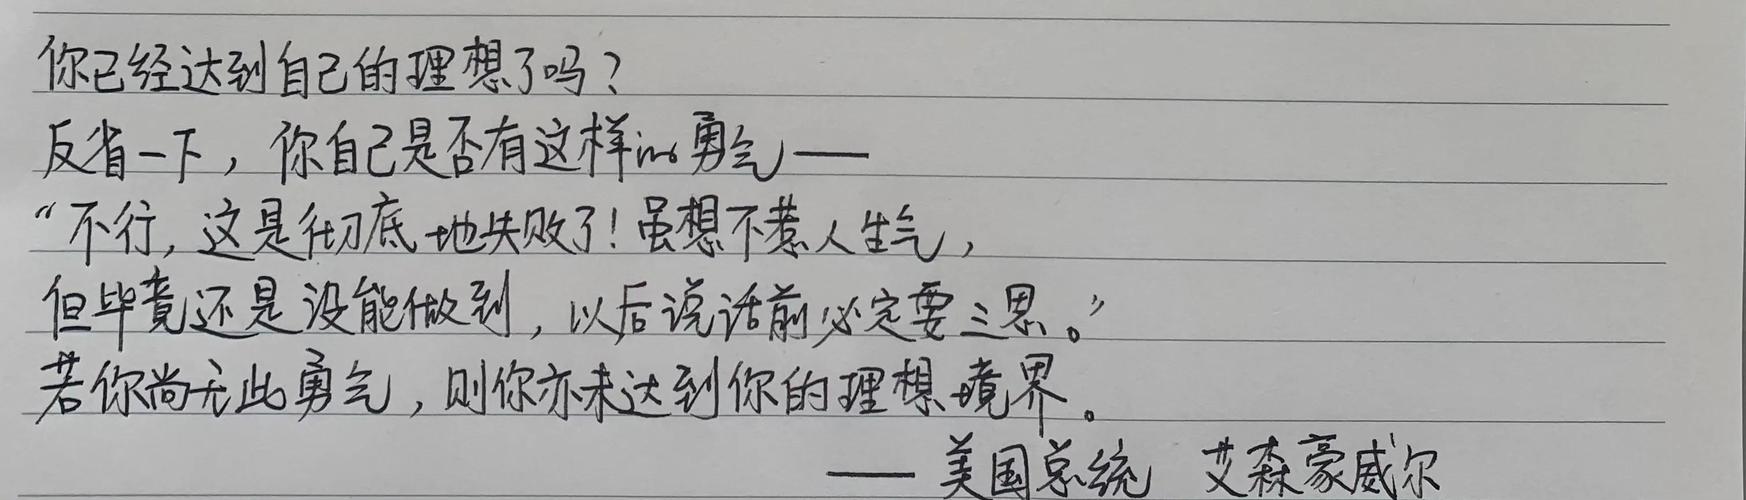 你已经达到自己的理想了吗？
反省一下，你自己是否有这样的勇气——
“不行，这是彻底地失败了！虽想不惹人生气，
但毕竟还是没能做到，以后说话前必定要三思。”
若你尚无此勇气，则你亦未达到你的理想境界。
——美国总统 艾森豪威尔